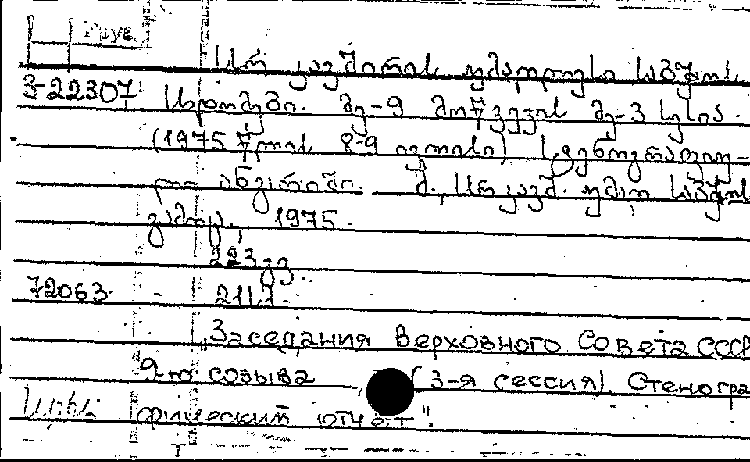 Груз.
სსრ კავშირის უმაღლესი საბჭოს
3-22307 სხდომები. მე-9 მოწვევის მე-3 სესია.
(1975 წლის 8-9 ივლისი) სტენოგრაფიუ-
ლი ანგარიში. მ., სსრ კავშ. უმაღ. საბჭოს
გამოც., 1975.
223 გვ.
72063 - 211 ე.
„Заседания Верховного Совета СССР
9-го созыва (3-я сессия). Стеногра
фический отчёт".